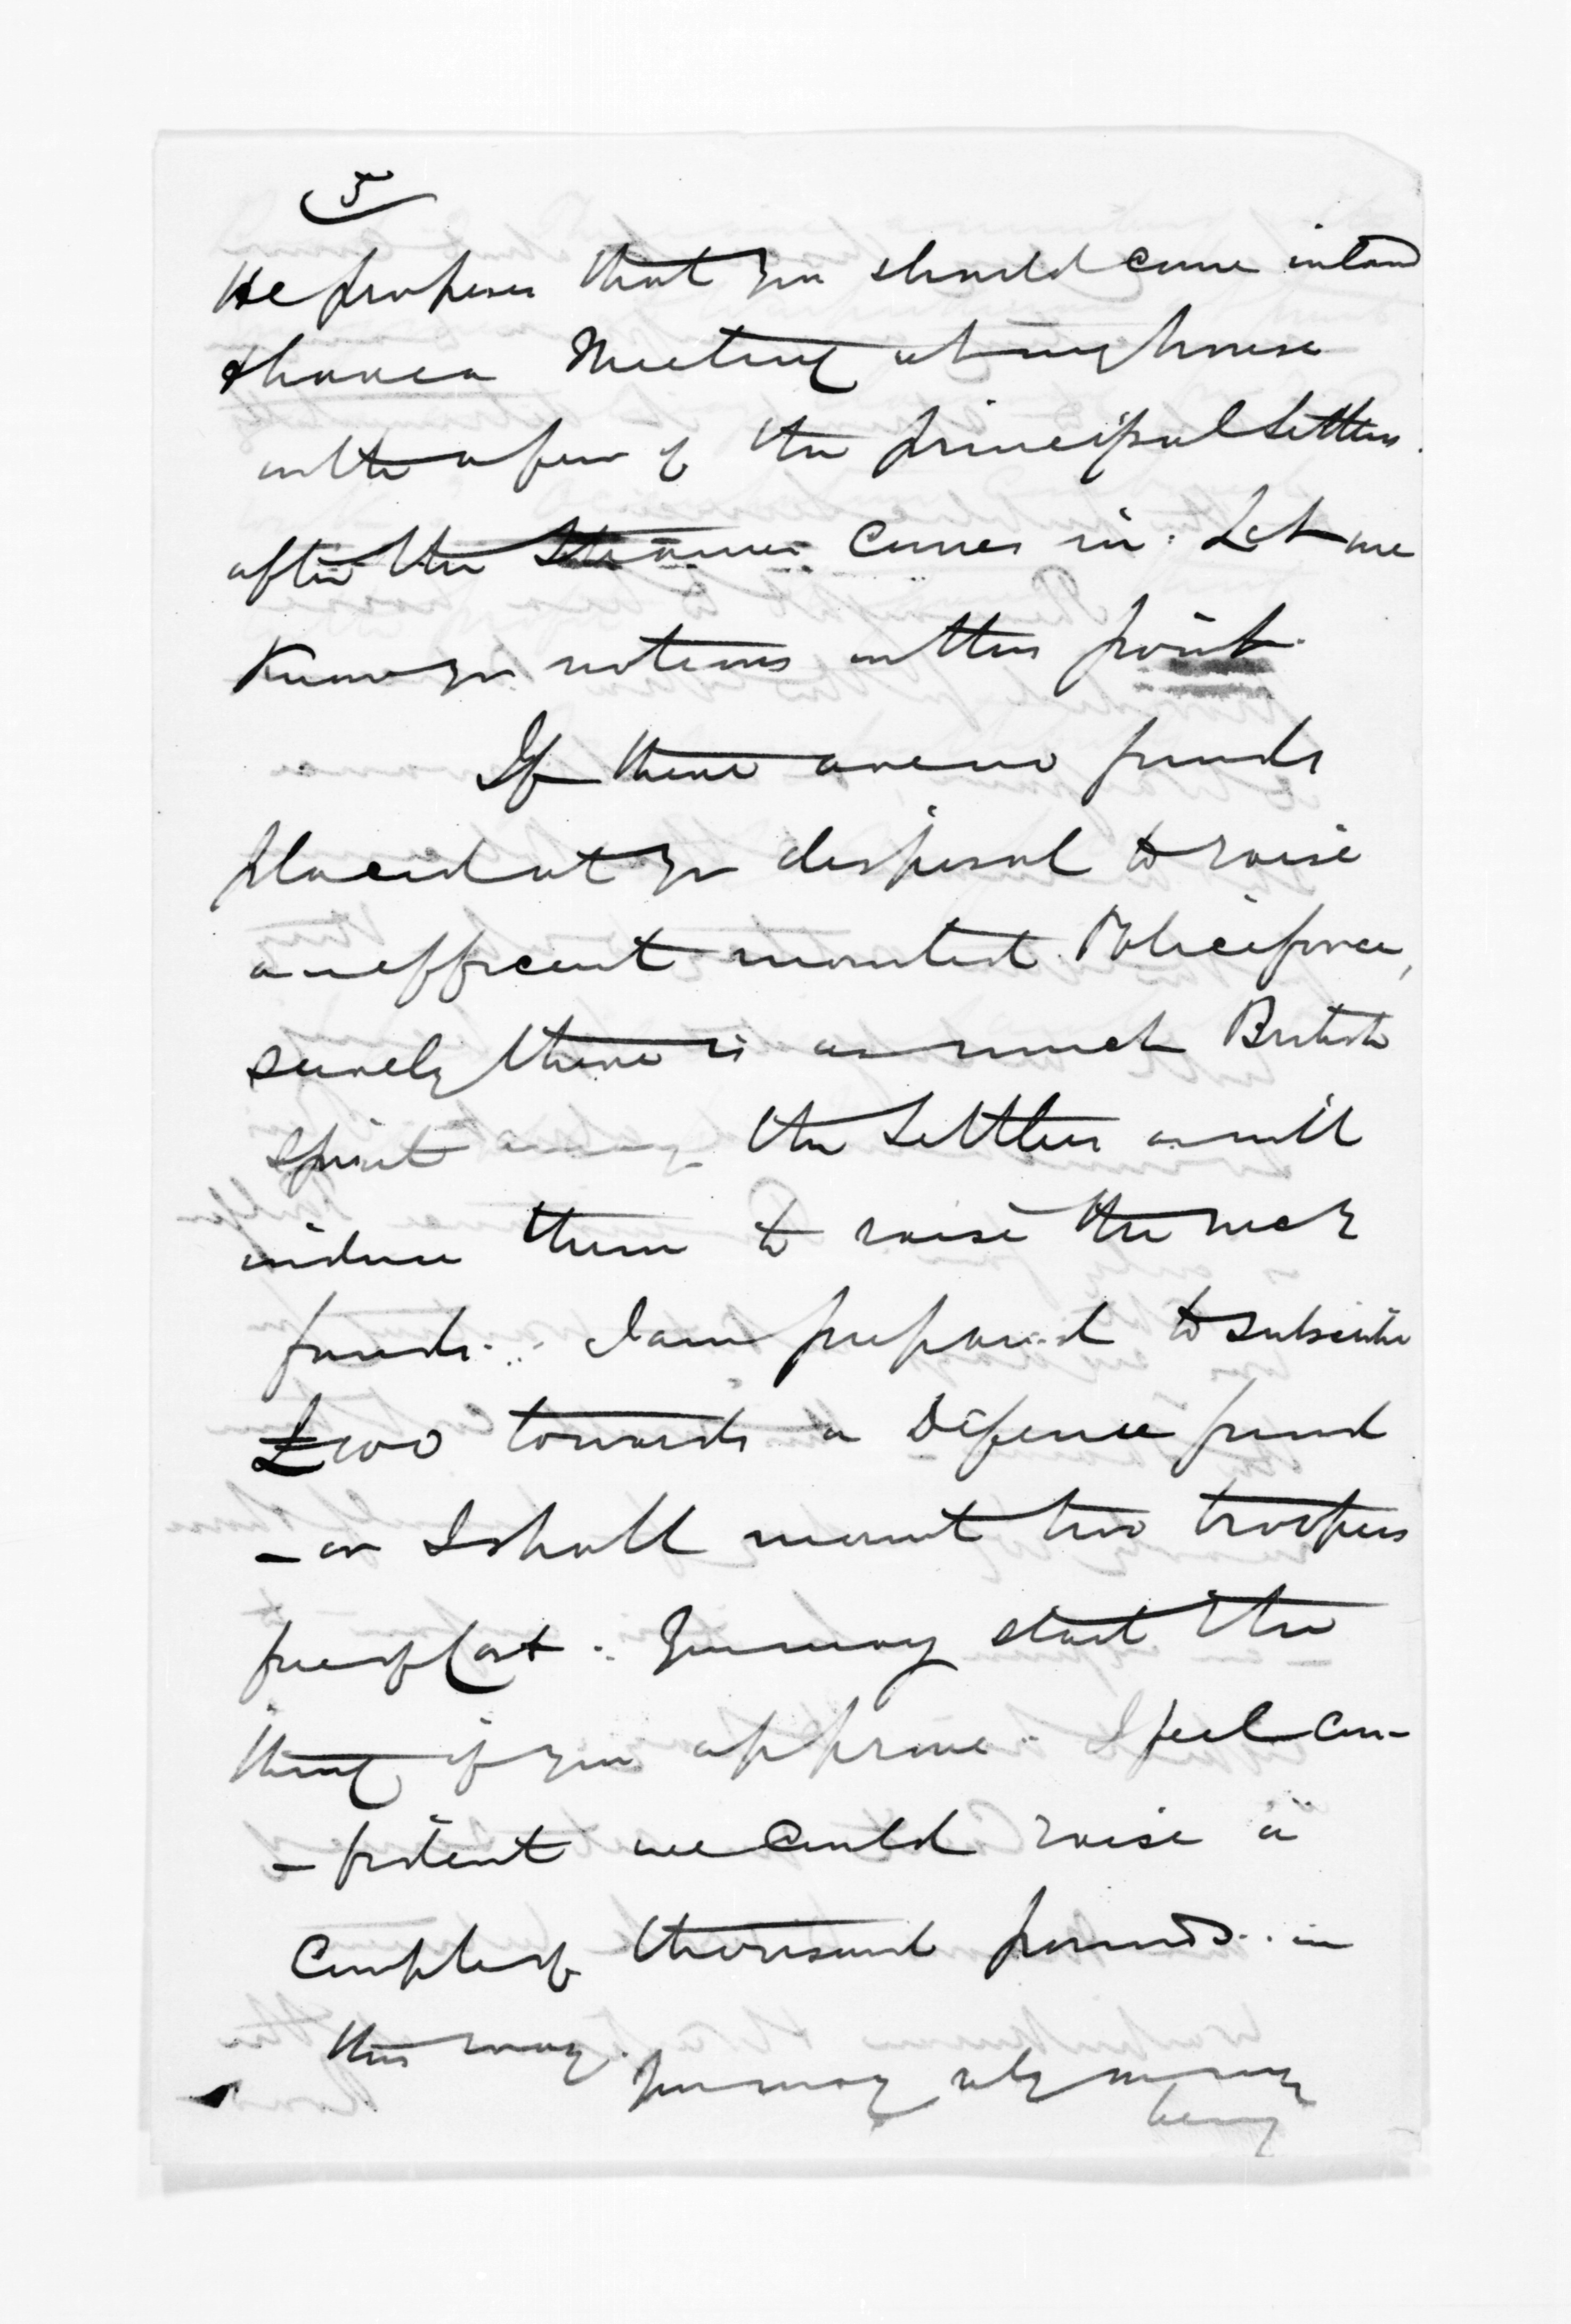 5
He proposes that you should come inland
& have a Meeting at my house
with a few of the principal Settlers
after the Steamer comes in. Let me
Know yr notions on this point.
If there are no funds
placed at yr disposal to raise
an efficient mounted Police force,
surely there is as much British
spirit among the Settlers as will
induce them to raise the necy
funds. I am prepared to subscribe
£100 towards a Defence fund
- or I shall mount two troopers
free of Cost. You may start the
thing if you approve. I feel con-
- fident we could raise a
Couple of thousand pounds in
this way. You may rely on my
being